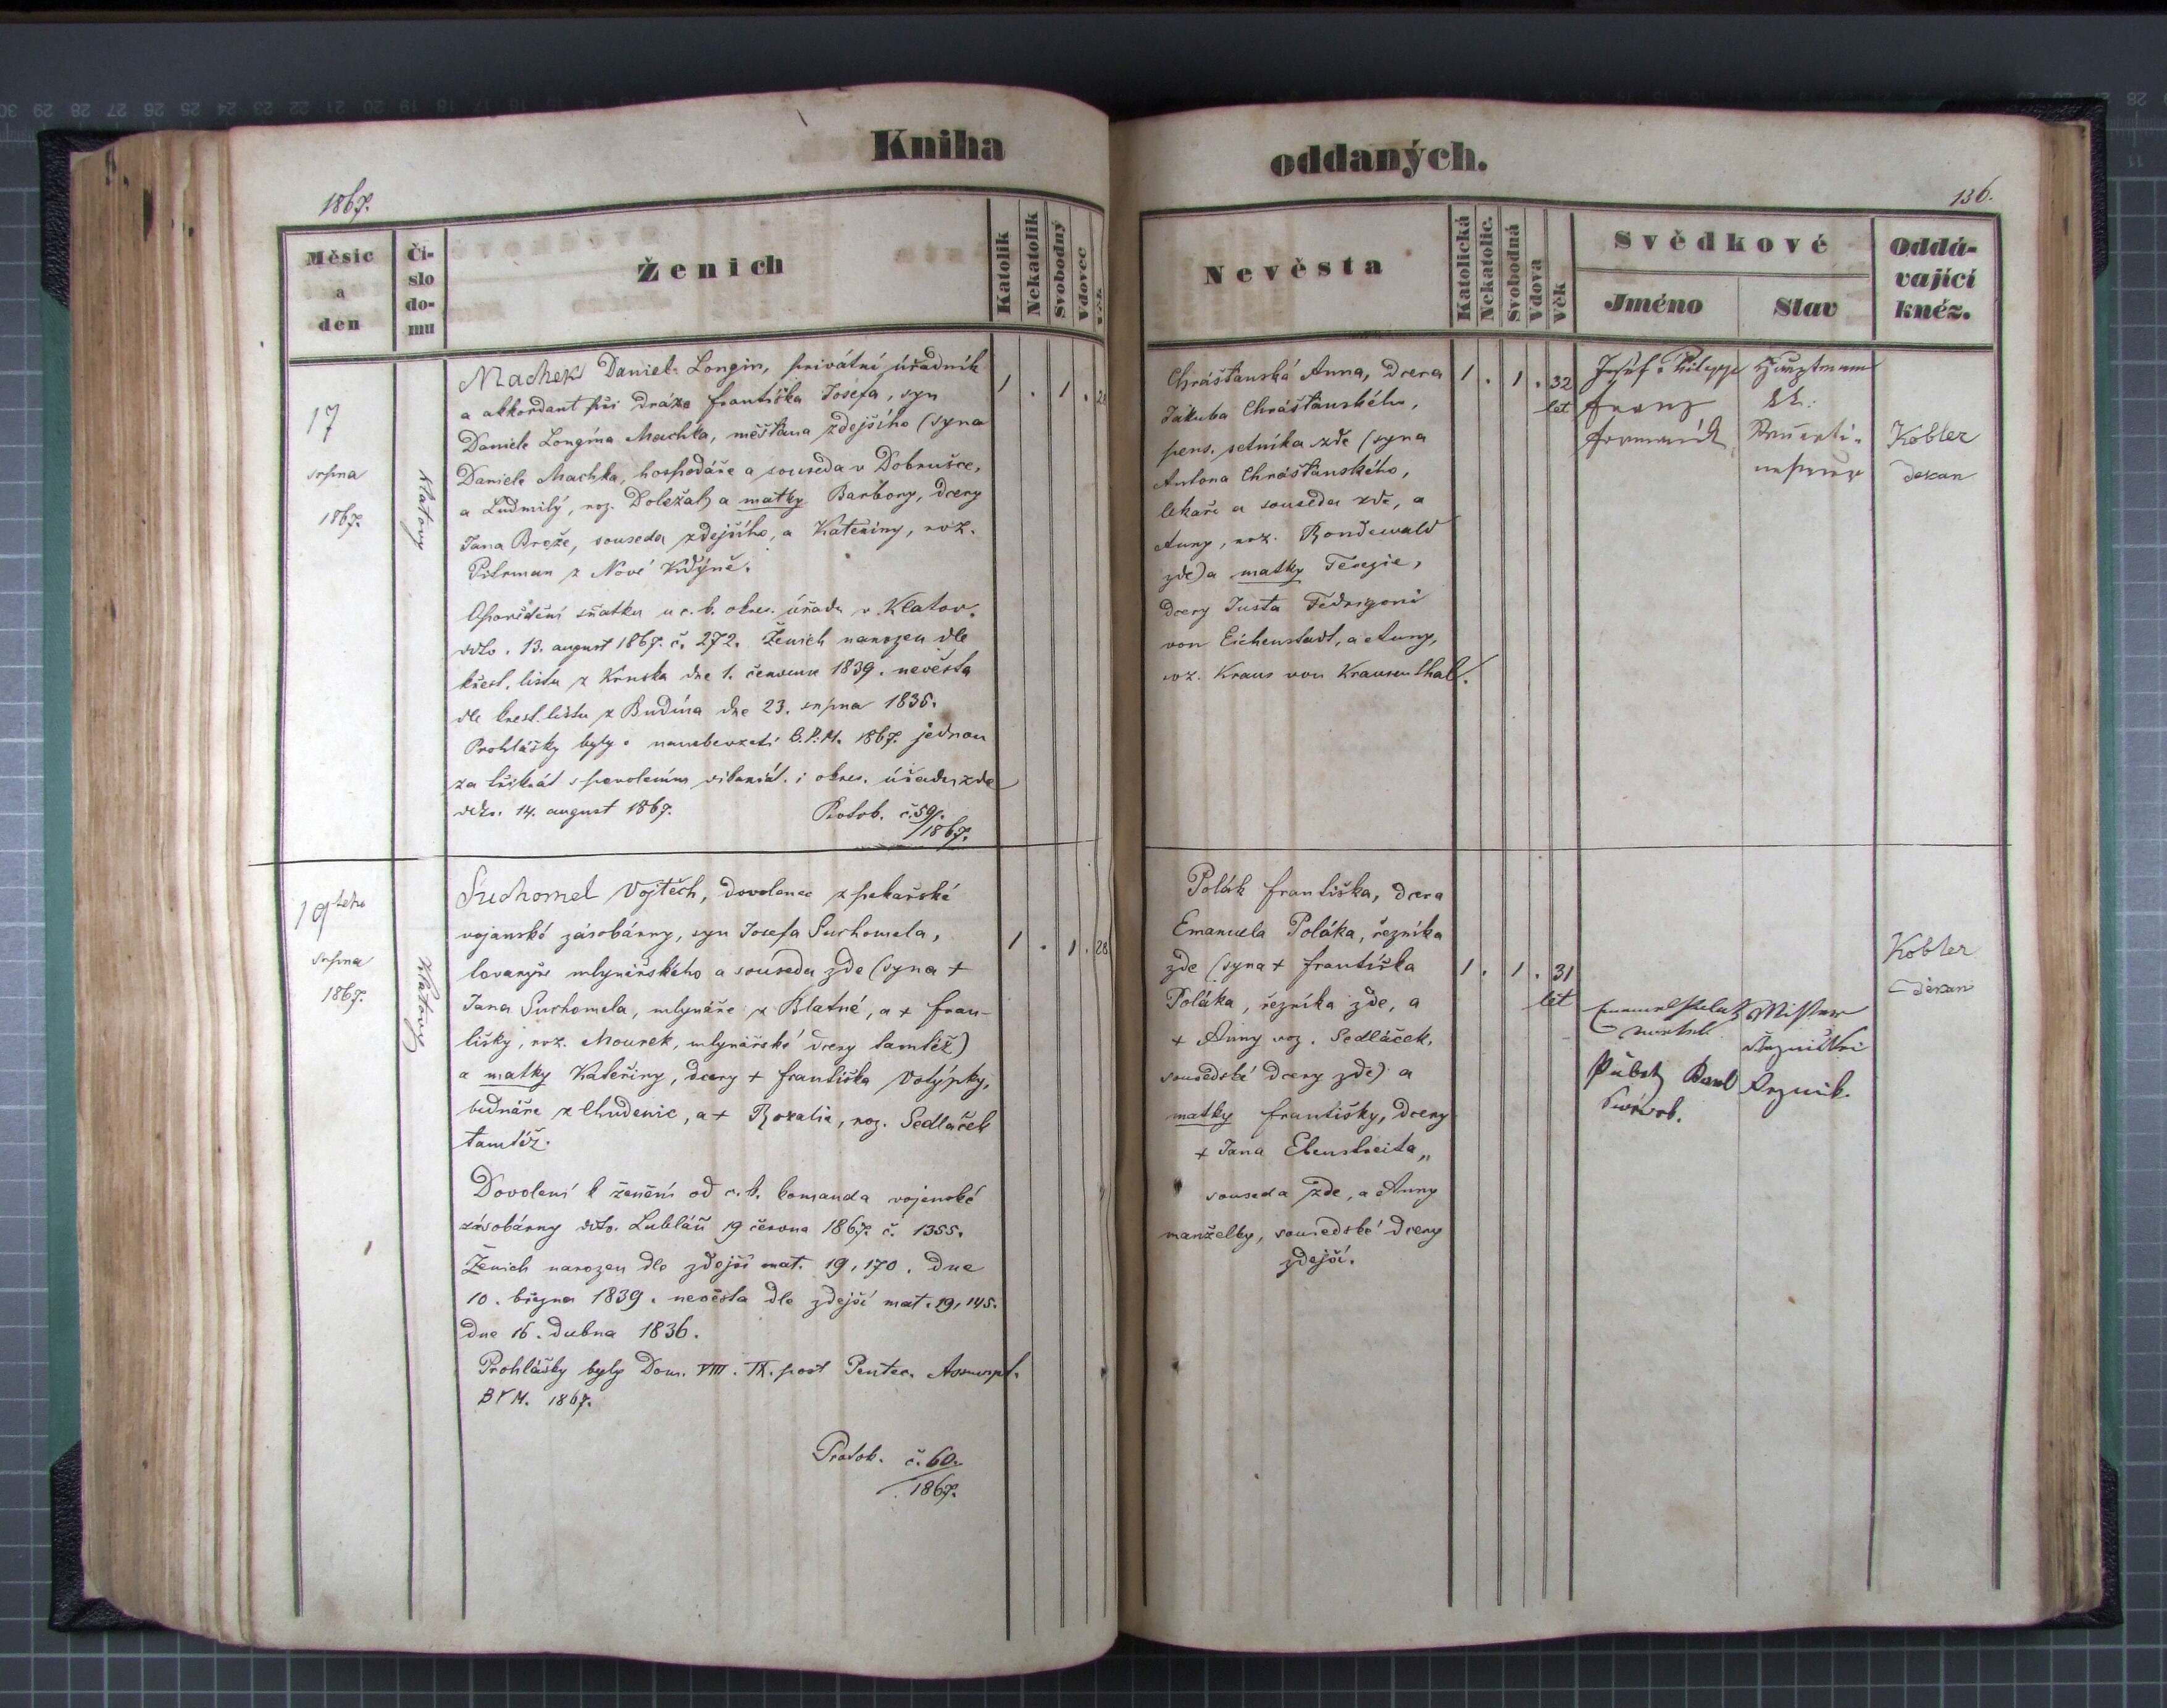 Kniha
oddaných.
1867.
136.
Měsíc
a
den
Čí-
slo
do-
mu
Ženich
Katolík
Nekatolík
Svobodný
Vdovec
Věk
Nevěsta
Katolická
Nekatolic.
Svobodná
Vdova
Věk
Svědkové
Jméno
Stav
Oddá-
vající
kněz.
17
srpna
1867.
Klatovy
Machek Daniel Longin, privátní úřadník
a akkordant při dráze Františka Josefa, syn
Daniele Longina Machka, měšťana zdejšího (syna
Daniele Machka, hospodáře a souseda v Dobrušce,
a Ludmilý, roz. Doležal) a matky Barbory, dcery
Jana Breže, souseda zdejšího, a Kateřiny, roz.
z Nové Kdýně.
sňatku u c. k. okres. úřadu v Klatov.
ddto. 13. august 1867. č. 272. Ženich narozen dle
křest. listu z dne 1. 1839. nevěsta
dle křest. listu z Budína dne 23. srpna 1835.
Prohlášky byly nanebevzetí B.P.M. 1867. jednou
za třikrát s povolením vikariát. i okres. úřadu zde
ddto. 14. august 1867.
Protok. č. 59/
1867.
1 . 1 . 28
Chrášťanská Anna, dcera
Jakuba Chrášťanského,
pens. setníka zde (syna
Antona Chrášťanského,
lékaře a souseda zde, a
Anny, roz. Rondewald
zde) a matky Terezie,
dcery Justa Fedrigoni
von Eichenstadt, a Anny,
roz. Kraus von Krausenthal.
1 . 1 . 32
let
Josef
Franz
Hauptmann
Kobler
děkan
19tého
srpna
1867.
Klatovy
Suchomel Vojtěch, dovolenec z pekařské
vojenské zásobárny, syn Josefa Suchomela,
tovaryše mlynářského a souseda zde (syna +
Jana Suchomela, mlynáře z Blatné, a + Fran-
tišky, roz. Mourek, mlynářské dcery tamtéž)
a matky Kateřiny, dcery + Františka Votýpky,
bednáře z Chudenic, a + Rozalie, roz. Sedláček
tamtéž.
Dovolení k ženění od c. k. komanda vojenské
zásobárny ddto. Lubláň 19 června 1867. č. 1355.
Ženich narozen dle zdejší mat. 19, 170. dne
10. března 1839. nevěsta dle zdejší mat. 19, 145.
dne 16. dubna 1836.
Prohlášky byly Dom. VIII. IX. post Pentec. Assumpt.
B V M. 1867.
Protok. č. 60.
1867.
1 . 1 . 28
Polák Františka, dcera
Emanuela Poláka, řezníka
zde (syna + Františka
Poláka, řezníka zde, a
+ Anny roz. Sedláček,
sousedské dcery zde) a
matky Františky, dcery
+ Jana Ebenstreita,
souseda zde, a Anny
manželky, sousedské dcery
zdejší.
1 . 1 . 31
let
Emanuel Polak
Mistr
Řeznický
Karl
svědek.
Řezník.
Kobler
děkan